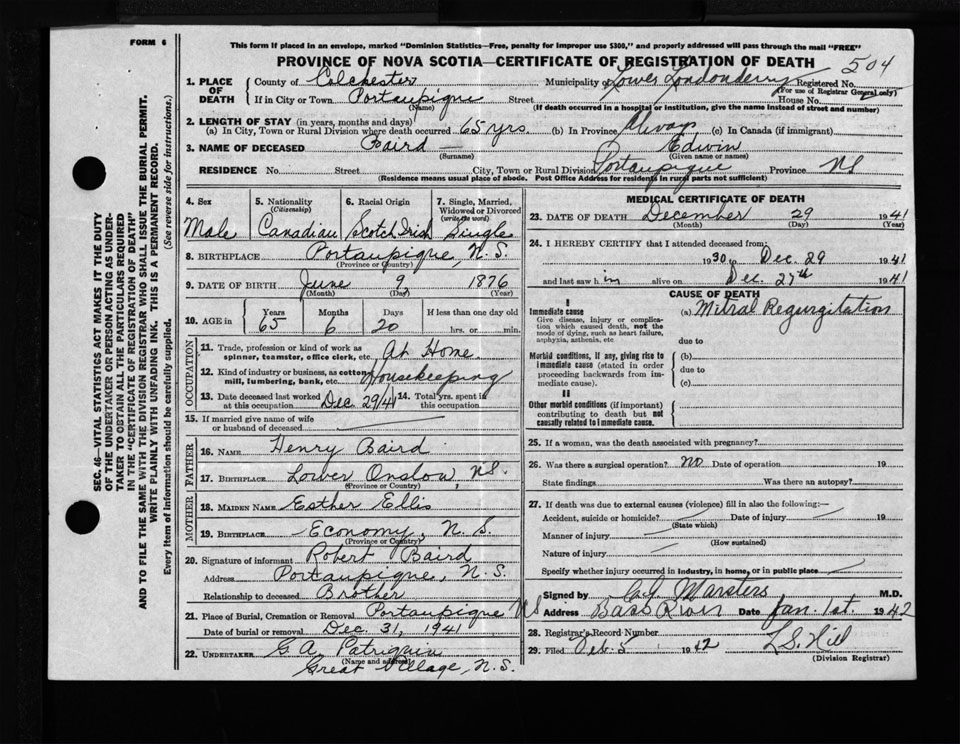 FORM 6
This form if placed in an envelope, marked "Dominion Statistics—Free, penalty for improper use $300," and properly addressed will pass through the mail "FREE"
PROVINCE OF NOVA SCOTIA—CERTIFICATE OF REGISTRATION OF DEATH 504
1. PLACE OF DEATH County of Colchester Municipality of Lower Londonderry Registered No.
(For use of Registrar General only)
If in City or Town Portaupique Street House No.
(Name) (If death occurred in a hospital or institution, give the name instead of street and number)
2. LENGTH OF STAY (in years, months and days)
(a) In City, Town or Rural Division where death occurred 65 yrs. (b) In Province Always (c) In Canada (if immigrant)
3. NAME OF DECEASED Baird — Edwin
(Surname) (Given name or names)
RESIDENCE No. Street City, Town or Rural Division Portaupique Province NS
(Residence means usual place of abode. Post Office Address for residents in rural parts not sufficient)
4. Sex 5. Nationality (Citizenship) 6. Racial Origin 7. Single, Married, Widowed or Divorced (Write the word)
Male Canadian Scotch Irish Single
8. BIRTHPLACE Portaupique, N.S.
(Province or Country)
9. DATE OF BIRTH June 9, 1876
(Month) (Day) (Year)
10. AGE in Years Months Days If less than one day old
65 6 20 hrs. or min.
OCCUPATION
11. Trade, profession or kind of work as spinner, teamster, office clerk, etc. At Home
12. Kind of industry or business, as cotton mill, lumbering, bank, etc. Housekeeping
13. Date deceased last worked at this occupation Dec 29/41 14. Total yrs. spent in this occupation
15. If married give name of wife or husband of deceased
FATHER
16. NAME Henry Baird
17. BIRTHPLACE Lower Onslow, N.S.
(Province or Country)
MOTHER
18. MAIDEN NAME Esther Ellis
19. BIRTHPLACE Economy, N.S.
(Province or Country)
20. Signature of informant Robert Baird
Address Portaupique, N.S.
Relationship to deceased Brother
21. Place of Burial, Cremation or Removal Portaupique NS
Date of burial or removal Dec 31, 1941
22. UNDERTAKER G A Patriquin
(Name and address)
Great Village, N.S.
MEDICAL CERTIFICATE OF DEATH
23. DATE OF DEATH December 29 1941
(Month) (Day) (Year)
24. I HEREBY CERTIFY that I attended deceased from:
1930 to Dec. 29 1941
and last saw him alive on Dec. 27th 1941
CAUSE OF DEATH
I
Immediate cause (a) Mitral Regurgitation
Give disease, injury or complication which caused death, not the mode of dying, such as heart failure, asphyxia, asthenia, etc
due to
Morbid conditions, if any, giving rise to immediate cause (stated in order proceeding backwards from immediate cause).
(b)
due to
(c)
II
Other morbid conditions (if important) contributing to death but not causally related to immediate cause.
25. If a woman, was the death associated with pregnancy?
26. Was there a surgical operation? No Date of operation 19
State findings Was there an autopsy?
27. If death was due to external causes (violence) fill in also the following:
Accident, suicide or homicide? Date of injury 19
(State which)
Manner of injury
(How sustained)
Nature of injury
Specify whether injury occurred in industry, in home, or in public place
Signed by Marsters M.D.
Address Bass River Date Jan. 1st. 1942
28. Registrar's Record Number
29. Filed Feb. 5 1942 L.S. Hill
(Division Registrar)
SEC. 46—VITAL STATISTICS ACT MAKES IT THE DUTY
OF THE UNDERTAKER OR PERSON ACTING AS UNDER-
TAKER TO OBTAIN ALL THE PARTICULARS REQUIRED
IN THE "CERTIFICATE OF REGISTRATION OF DEATH"
AND TO FILE THE SAME WITH THE DIVISION REGISTRAR WHO SHALL ISSUE THE BURIAL PERMIT.
WRITE PLAINLY WITH UNFADING INK. THIS IS A PERMANENT RECORD.
Every item of information should be carefully supplied. (See reverse side for instructions.)